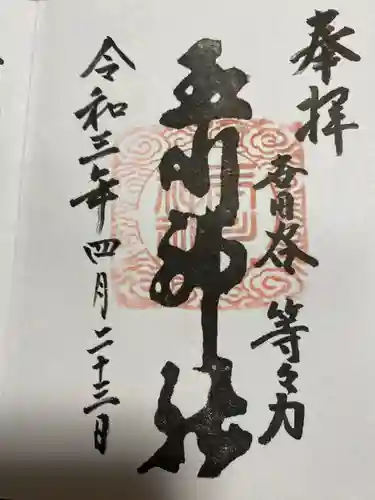 奉拝
世田谷 等々力
玉川神社
令和三年四月二十三日